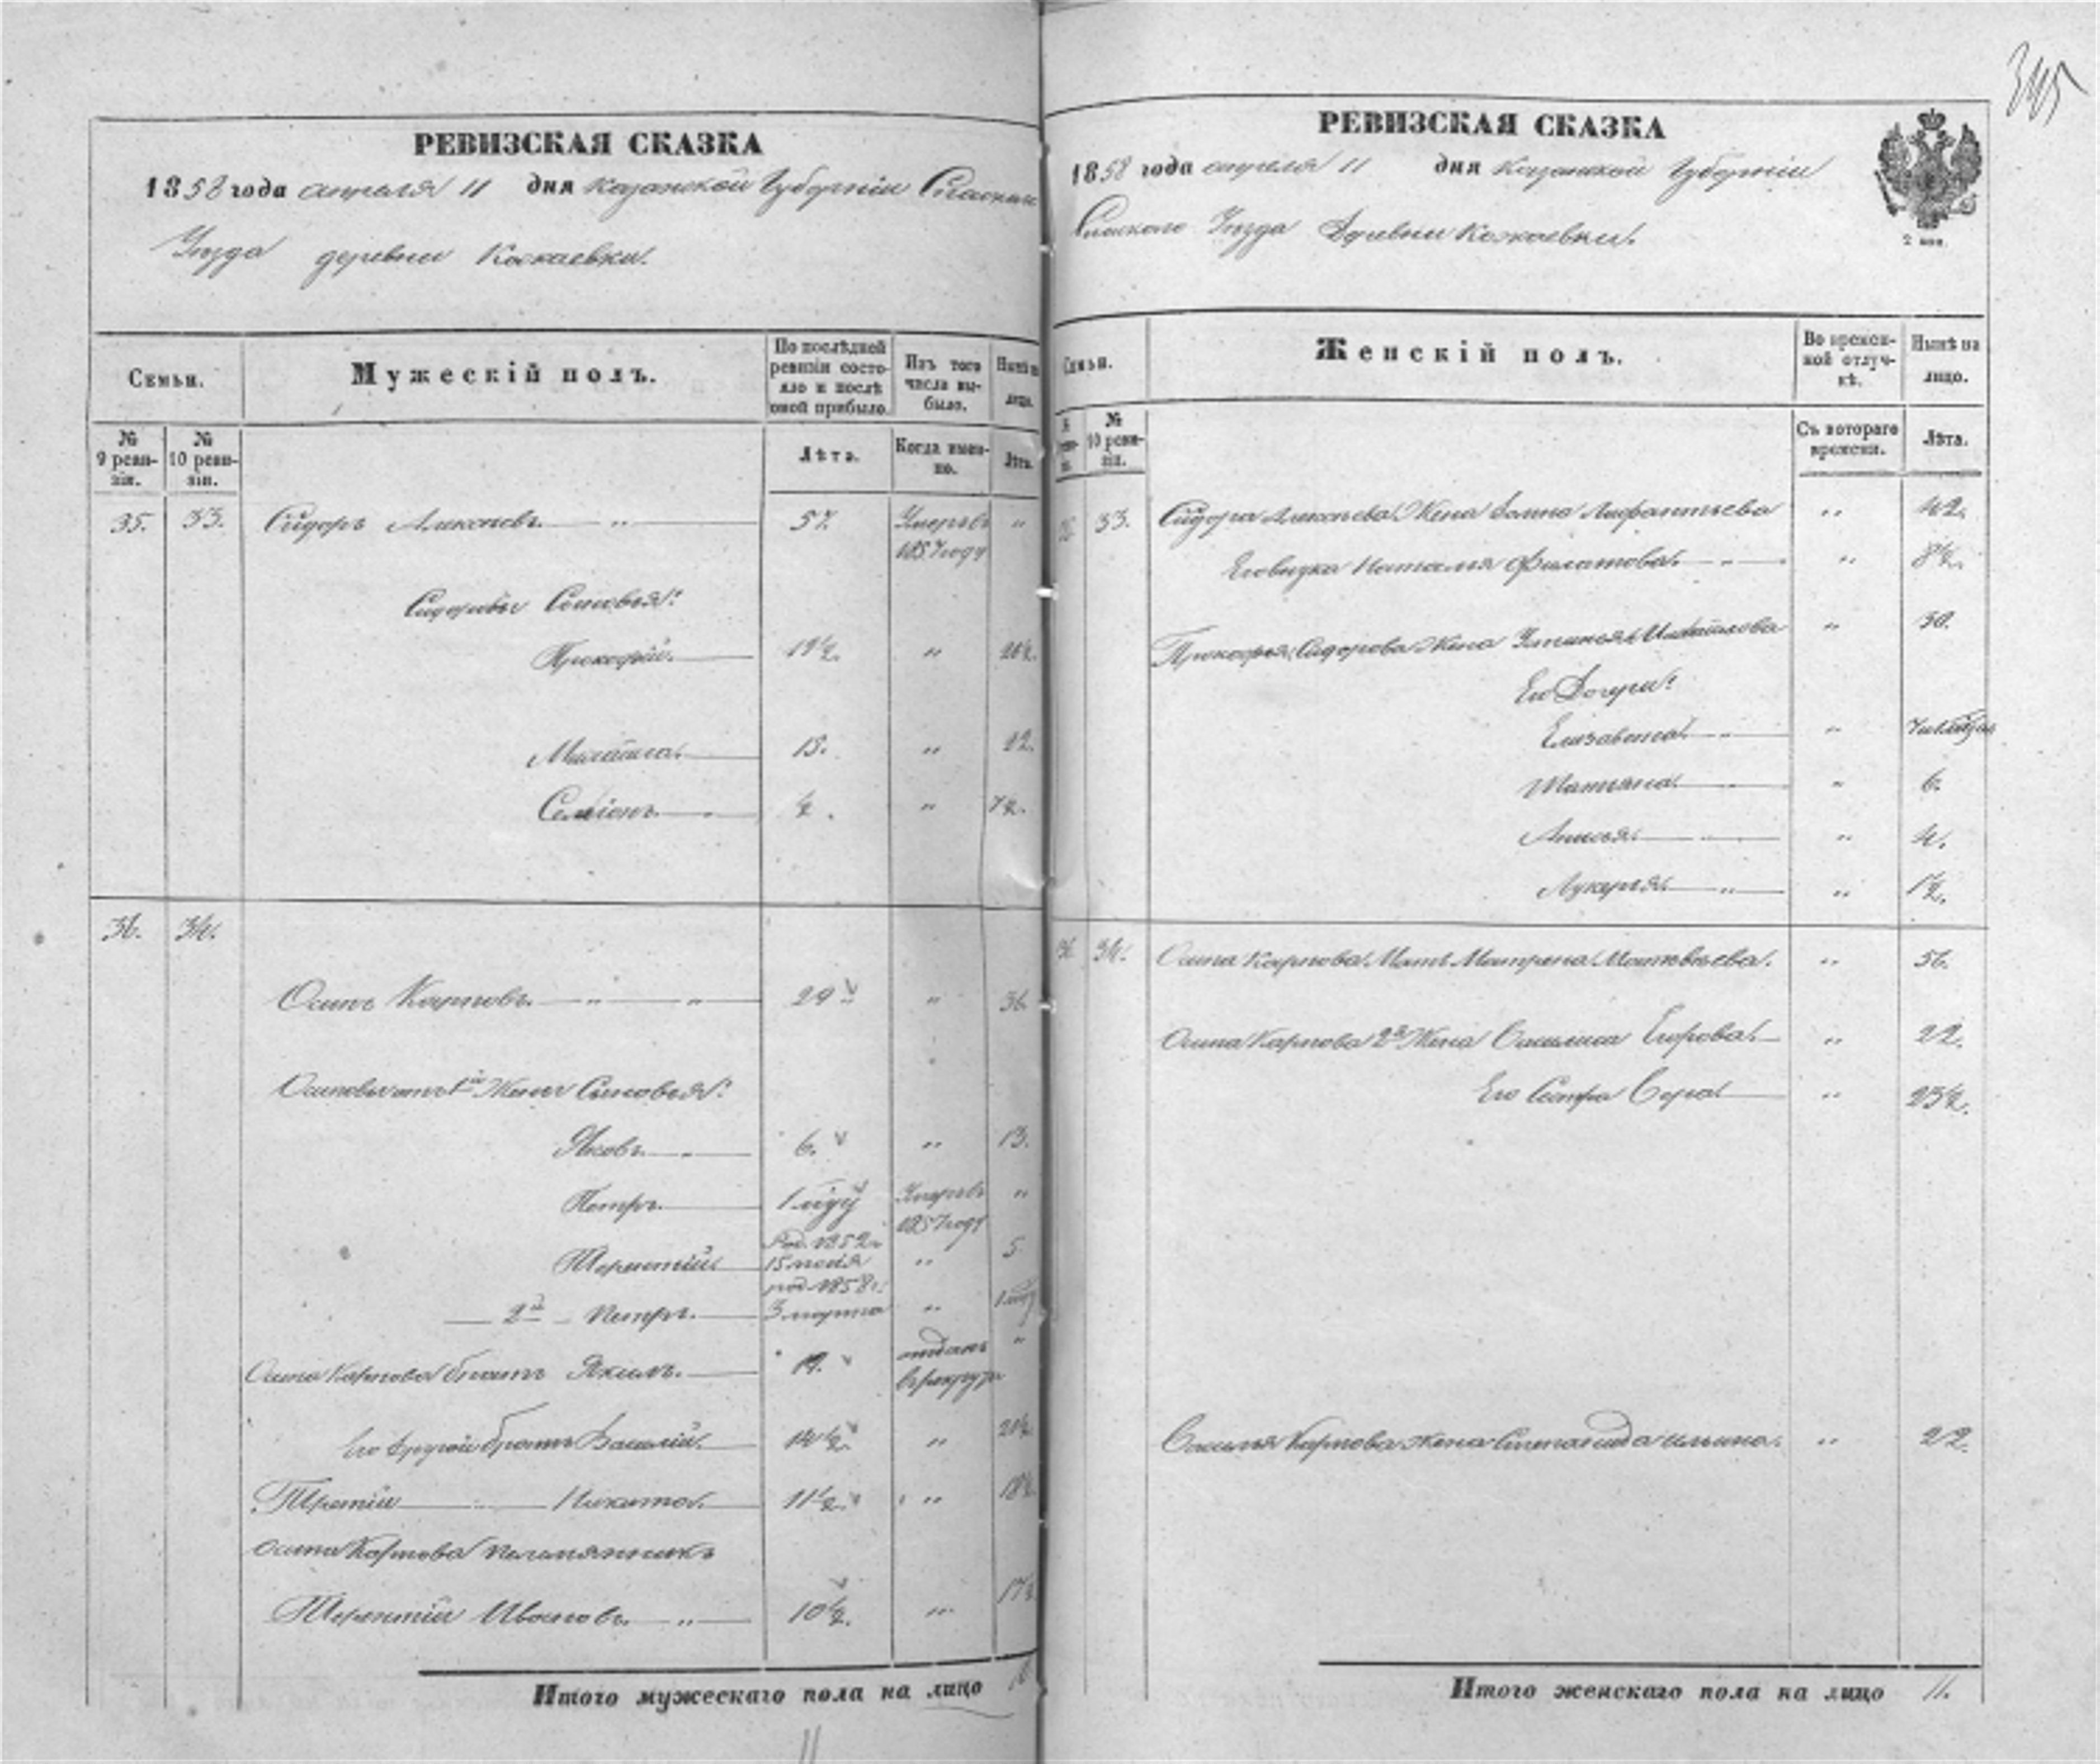 345
РЕВИЗСКАЯ СКАЗКА
1858 года апреля 11 дня Казанской Губерніи Спаскаго
Уѣзда деревни Кожаевки.
Семьи.
Мужескій полъ.
По послѣдней ревизіи состояло и послѣ оной прибыло.
Изъ того числа выбыло.
Нынѣ на лицо.
№ 9 ревизіи.
№ 10 ревизіи.
Лѣта.
Когда именно.
Лѣта.
35. 33. Сидоръ Алексѣевъ. " 57. Умеръ въ "
1857 году
Сидоровы Сыновья:
Прокофій. "
Михайла. 15. " 22.
Семіонъ. ½. " 7½.
36. 34.
Осипъ Карповъ. " " 29 " 36.
Осиповы отъ 1й Жены Сыновья:
Яковъ. " 6. " 13.
Петръ. 1 году Умеръ въ "
1857 году
Род. 1852 г.
Терентій 15 " 5
род. 1858 г.
2й Петръ. 3 марта "
Осипа Карпова братъ Якимъ. 19. отданъ "
в рекруты
Его другой братъ Василій. 14½. " 21½
Третій Никита. 11½. " 18½
Осипа Карпова племянникъ
Терентій Ивановъ. " 10½. " 17½
Итого мужескаго пола на лицо
11
РЕВИЗСКАЯ СКАЗКА
1858 года апреля 11 дня Казанской Губерніи
Спаскаго Уѣзда Деревни Кожаевки.
2 коп.
Семьи.
Женскій полъ.
Во временной отлучкѣ.
Нынѣ на лицо.
№ 10 ревизіи.
Съ котораго времени.
Лѣта.
33. Сидора Алексѣева Жена " 42.
Наталья Филатова. " "
Прокофья Сидорова Жена Устинья Михайлова " 30.
Ево Дочери:
Елизавета. " "
Татьяна. " 6.
Анисья. " " 4.
Лукерья. " " 1½.
36 34. Осипа Карпова Мать Матрена Матвѣева. " 56.
Осипа Карпова 2я Жена Василиса Егорова. " 22.
Его Сестра " 23½.
Василья Карпова жена Степанида Ильина. " 22.
Итого женскаго пола на лицо 11.